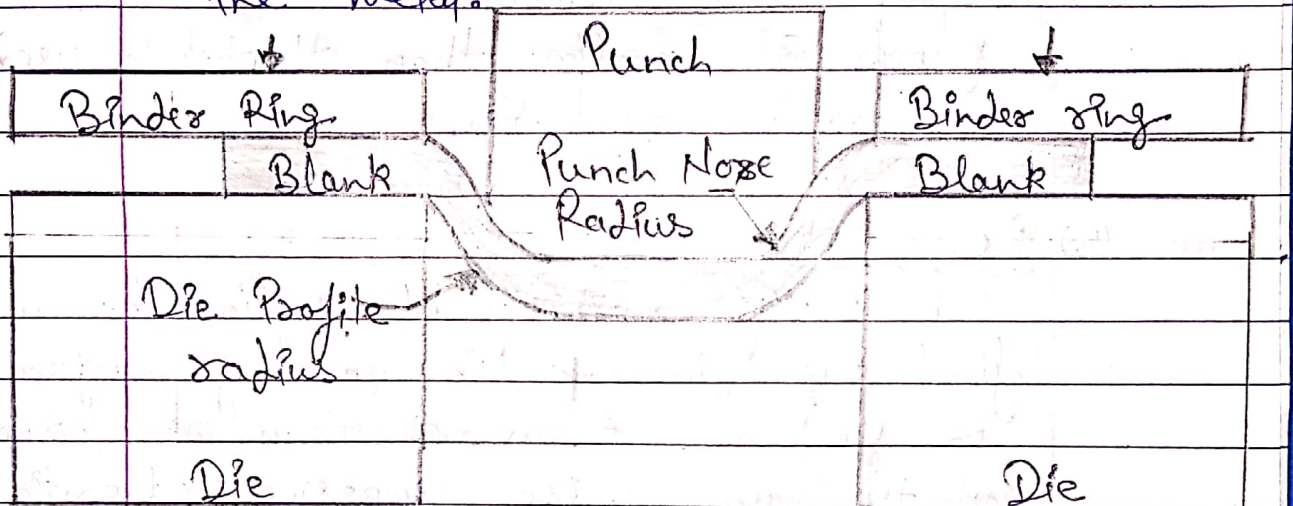 the metal.
Punch
Binder Ring
Binder ring
Blank
Punch Nose
Radius
Blank
Die Profile
radius
Die
Die